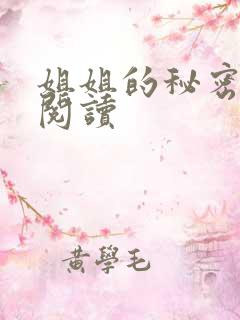 姐姐的秘密
閱讀
黃學毛